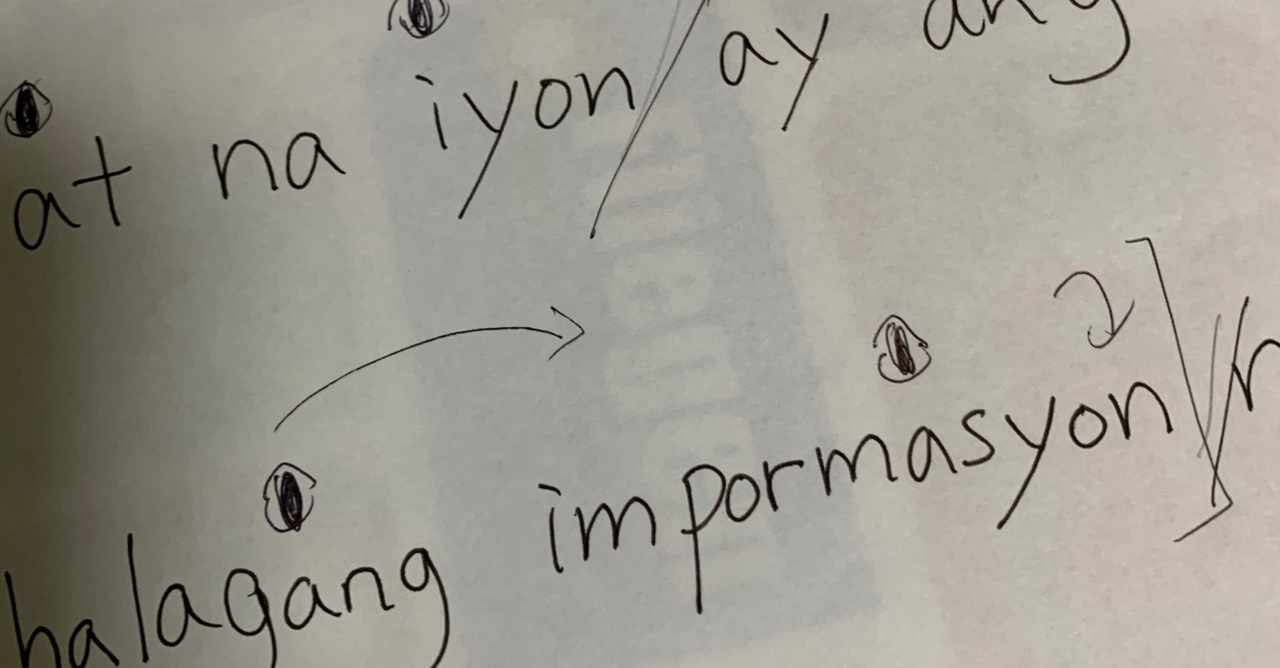 at na iyon / ay ang
halagang impormasyon